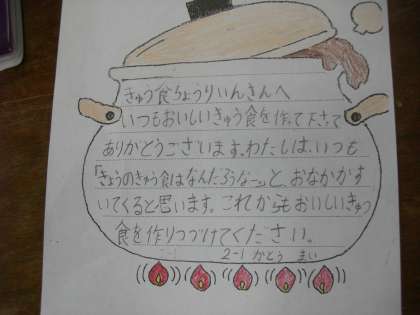 きゅう食ちょうりいんさんへ
いつもおいしいきゅう食を作って下さって
ありがとうございます。わたしは、いつも
「きょうのきゅう食はなんだろうなーっ」と、おなかがす
いてくると思います。これからもおいしいきゅう
食を作りつづけてください。
2-1 かとう まい